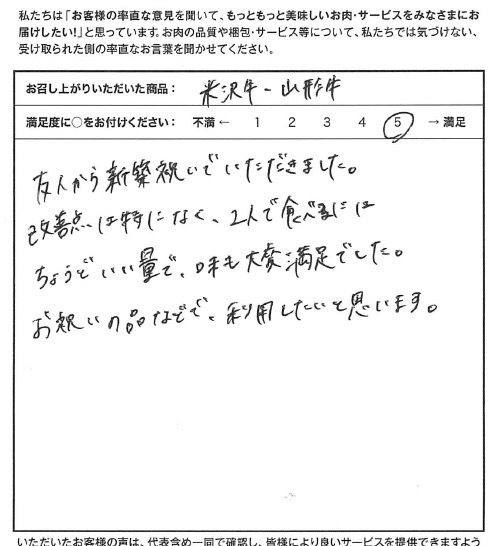 私たちは「お客様の率直な意見を聞いて、もっともっと美味しいお肉・サービスをみなさまにお
届けしたい!」と思っています。お肉の品質や梱包・サービス等について、私たちでは気づけない、
受け取られた側の率直なお言葉を聞かせてください。
お召し上がりいただいた商品： 米沢牛－山形牛
満足度に○をお付けください： 不満 ← 1 2 3 4 5 → 満足
友人から新築祝いでいただきました。
改善点は特になく、2人で食べるには
ちょうどいい量で、味も大変満足でした。
お祝いの品などで、利用したいと思います。
いただいたお客様の声は、代表含め一同で確認し、皆様により良いサービスを提供できますよう